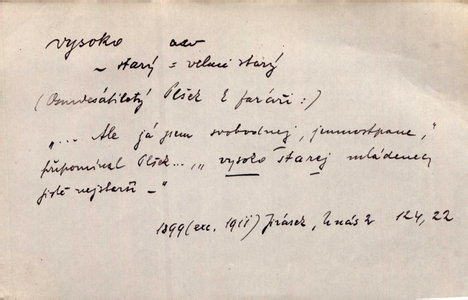 vysoko adv
~ starý = velmi starý
(Osmdesátiletý Plšek k faráři:)
„... Ale já jsem svobodnej, jemnostpane,"
připomínal Plšek..., „vysoko starej mládenec,
jistě nejstarší –"
1899 (exc. 1911) Jirásek, U nás 2 124, 22